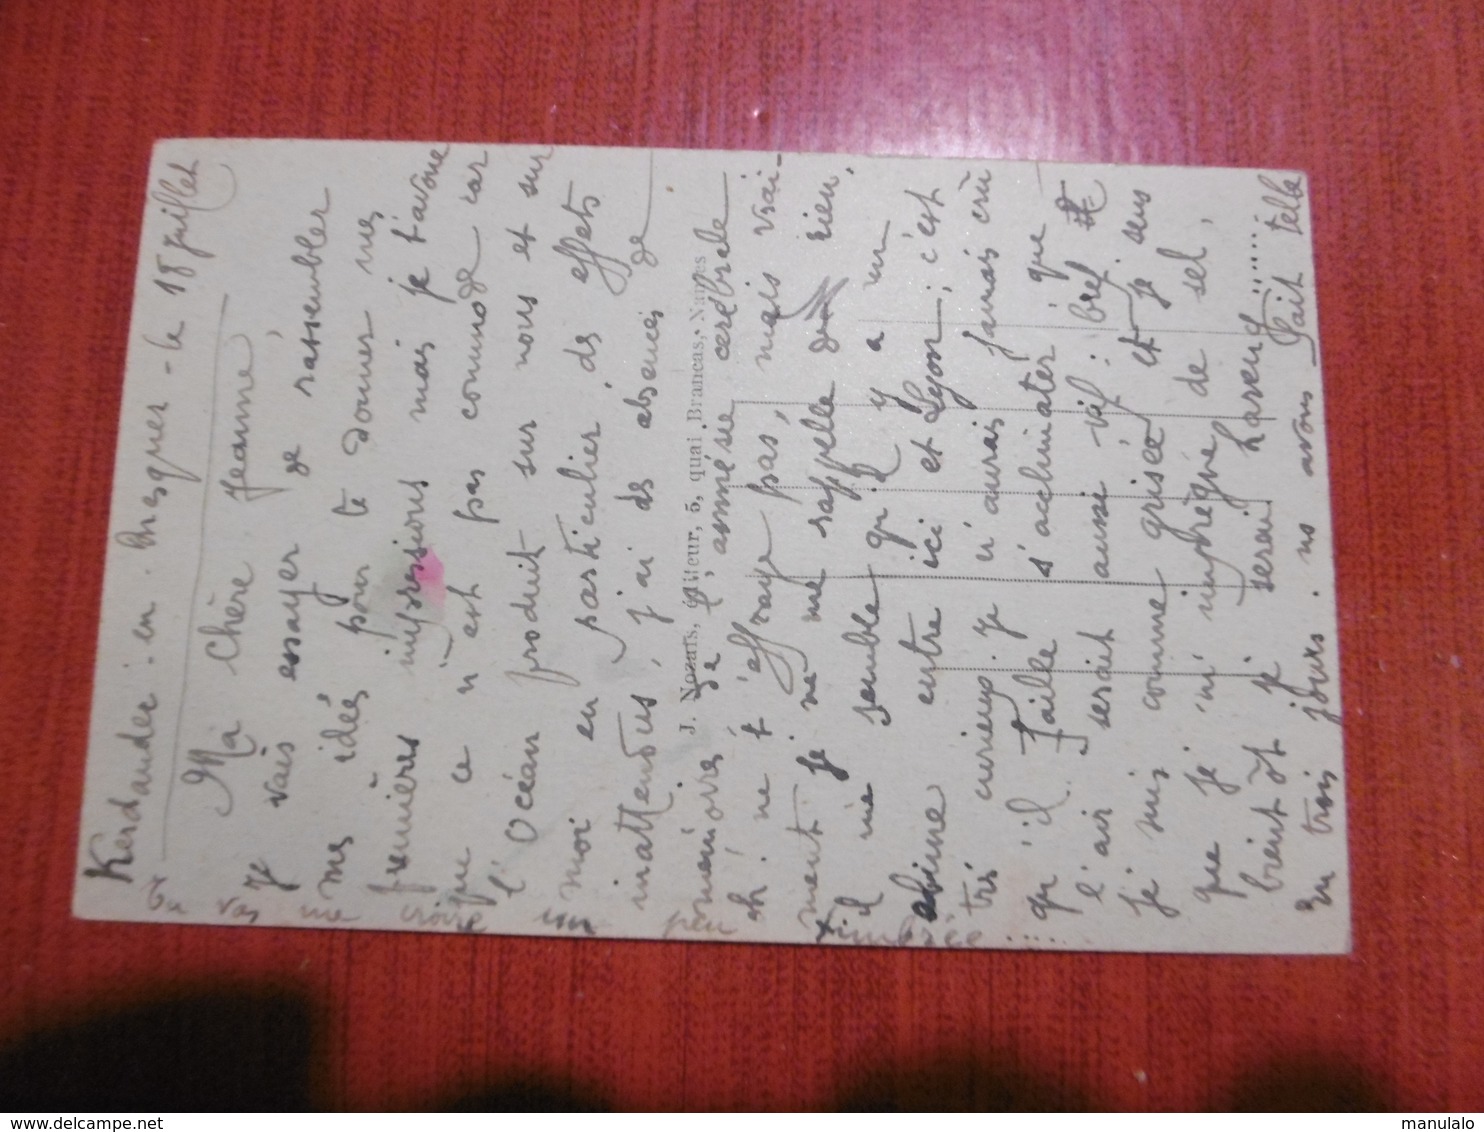 Kerdandec : en . Presquer - le 18 juillet
Ma Chère Jeanne,
Je vais essayer de rassembler
mes idées pour te donner mes
premières impressions mais je t'avoue
que ce n'est pas commode car
l'Océan produit sur nous et sur
moi en particulier, des effets
inattendus, j'ai des absences de
J. Nozais, éditeur, 5, quai Brancas, Nantes
mémoires de l'amnésie cérébrale
oh! ne t'effraye pas, mais vrai-
ment je ne me rappelle rien,
il me semble qu'il y a un
abîme entre ici et Lyon ; c'est
très curieux je n'aurais jamais crû
qu'il faille s'acclimater que
l'air serait aussi vif : bref
je suis comme grisée et je sens
que je m'imprègne de sel,
bientôt je serai hareng ......
En trois jours . ns avons fait
tu vas me croire un peu timbrée .....
www.delcampe.net
manulalo